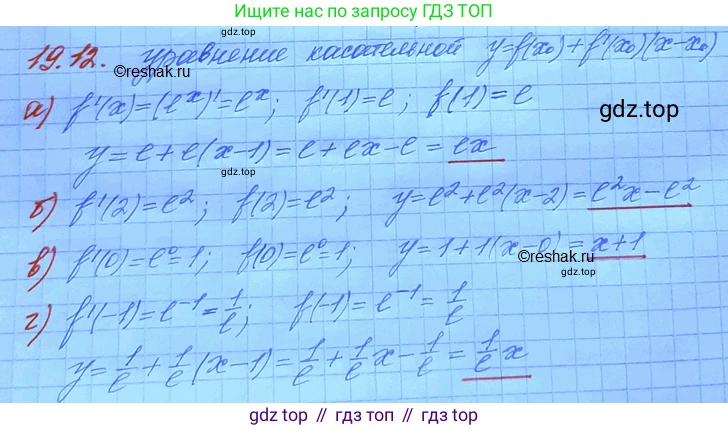 Ищите нас по запросу ГДЗ ТОП
gdz.top
19.12. уравнение касательной y=f(x₀)+f'(x₀)(x-x₀)
©reshak.ru
а) f'(x)=(eˣ)'=eˣ; f'(1)=e; f(1)=e
gdz.top
y=e+e(x-1)=e+ex-e=ex
gdz.top
б) f'(2)=e²; f(2)=e²; y=e²+e²(x-2)=e²x-e²
©reshak.ru
в) f'(0)=e⁰=1; f(0)=e⁰=1; y=1+1(x-0)=x+1
gdz.top
г) f'(-1)=e⁻¹=1/e; f(-1)=e⁻¹=1/e
y=1/e+1/e(x-1)=1/e+1/e x-1/e=1/e x
gdz top // гдз топ // gdz.top